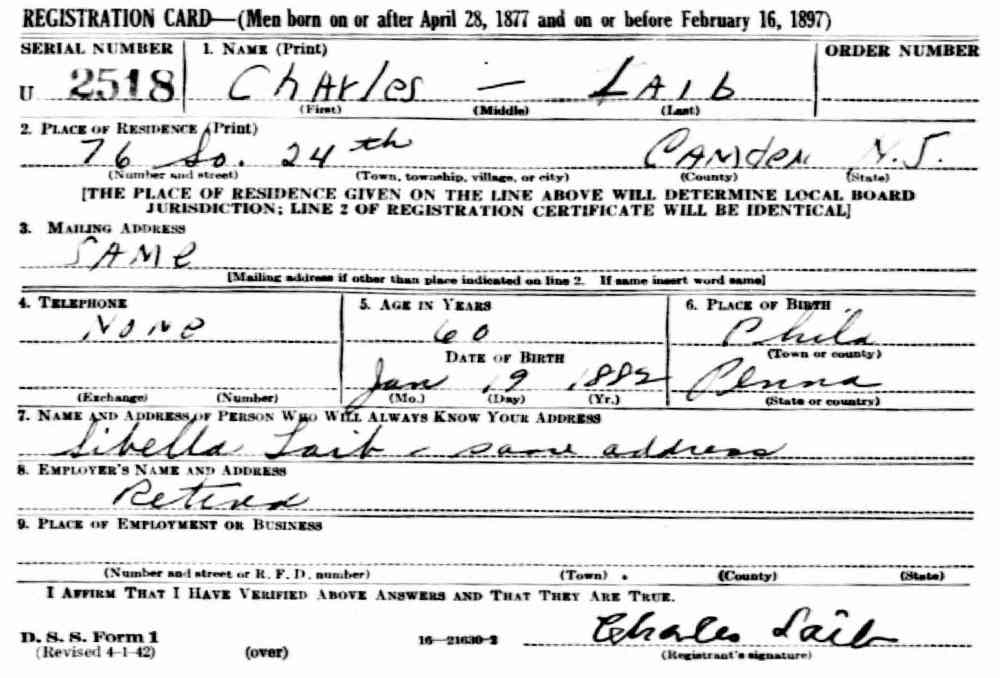 REGISTRATION CARD—(Men born on or after April 28, 1877 and on or before February 16, 1897)
SERIAL NUMBER 1. NAME (Print) ORDER NUMBER
U 2518 Charles — Laib
(First) (Middle) (Last)
2. PLACE OF RESIDENCE (Print)
76 So. 24th Camden N.J.
(Number and street) (Town, township, village, or city) (County) (State)
[THE PLACE OF RESIDENCE GIVEN ON THE LINE ABOVE WILL DETERMINE LOCAL BOARD
JURISDICTION; LINE 2 OF REGISTRATION CERTIFICATE WILL BE IDENTICAL]
3. MAILING ADDRESS
SAMe
[Mailing address if other than place indicated on line 2. If same insert word same]
4. TELEPHONE 5. AGE IN YEARS 6. PLACE OF BIRTH
NoNe 60 Phila
DATE OF BIRTH (Town or county)
Jan 19 1882 Penna
(Exchange) (Number) (Mo.) (Day) (Yr.) (State or country)
7. NAME AND ADDRESS OF PERSON WHO WILL ALWAYS KNOW YOUR ADDRESS
Sibella Laib - same address
8. EMPLOYER'S NAME AND ADDRESS
Retired
9. PLACE OF EMPLOYMENT OR BUSINESS
(Number and street or R. F. D. number) (Town) (County) (State)
I AFFIRM THAT I HAVE VERIFIED ABOVE ANSWERS AND THAT THEY ARE TRUE.
D. S. S. Form 1 16—21630-2 Charles Laib
(Revised 4-1-42) (over) (Registrant's signature)